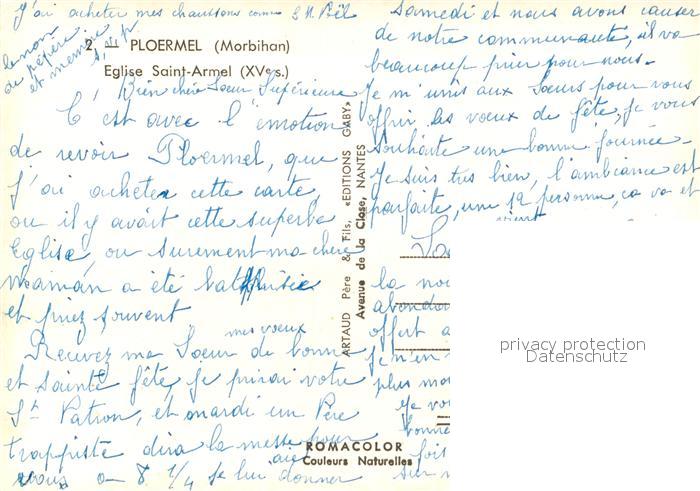 j'ai acheter mes chaussons comme
le nom
de pépère
et memère
2. PLOERMEL (Morbihan)
Eglise Saint-Armel (XVe s.)
Bien chère Sœur Supérieure
C'est avec l'émotion
de revoir Ploermel, que
j'ai acheter cette carte,
ou il y avait cette superbe
Eglise, ou surement ma chère
maman a été
et priez souvent
mes voeux
Recevez ma Sœur de bonne
et sainte fête, je prirai votre
St Patron, et mardi un Père
trappiste dira la messe pour
vous a 8 1/4 je lui ai donner
ARTAUD Père & Fils, «EDITIONS GABY»
Avenue de la Close, NANTES
ROMACOLOR
Couleurs Naturelles
samedi et nous avons causer
de notre communauté, il va
beaucoup prier pour nous.
Je m'unis aux Sœurs pour vous
offrir les vœux de fête, je vous
souhaite une bonne journée.
Je suis très bien, l'ambiance est
parfaite, une 12 personne, ca va et
vient
la
offert
je n'en
plus
Je
foi
sur
privacy protection
Datenschutz